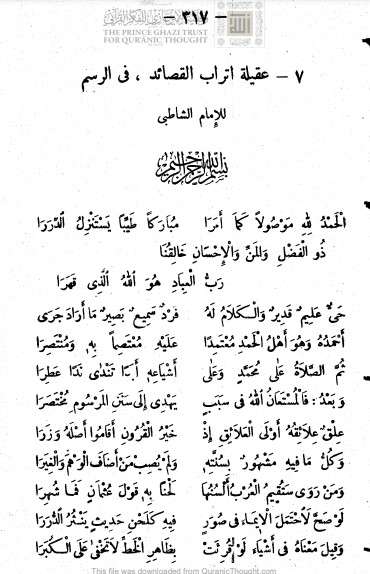 - ٣١٧ -
THE PRINCE GHAZI TRUST
FOR QUR'ĀNIC THOUGHT
٧ – عقيلة اتراب القصائد ، فى الرسم
للإمام الشاطبى
بسم الله الرحمن الرحيم
الْحَمْدُ لِلهِ مَوْصُولاً كَمَا أَمَرَا مُبَارَكاً طَيِّبًا يَسْتَنْزِلُ الدِّرَرَا
ذُو الْفَضْلِ وَالمَنِّ وَالْإِحْسَانِ خَالِقُنَا
رَبُّ الْعِبَادِ هُوَ اللهُ الَّذِى قَهَرَا
حَىٌّ عَلِيمٌ قَدِيرٌ وَالْكَلَامُ لَهُ فَرْدٌ سَمِيعٌ بَصِيرٌ مَا أَرَادَ جَرَى
أَحْمَدُهُ وَهُوَ أَهْلُ الْحَمْدِ مُعْتَمِدًا عَلَيْهِ مُعْتَصِماً بِهِ وَمُنْتَصِرَا
ثُمَّ الصَّلَاةُ عَلَى مُحَمَّدٍ وَعَلَى أَشْيَاعِهِ أَبَدًا تَنْدَى نَدًا عَطِرَا
وَبَعْدُ : فَالْمُسْتَعَانُ اللهُ فى سَبَبٍ يَهْدِى إِلَى سَنَنِ الْمَرْسُومِ مُخْتَصَرَا
عِلْقٌ عَلَائِقُهُ أَوْلَى الْعَلَائِقِ إِذْ خَيْرُ الْقُرُونِ أَقَامُوا أَصْلَهُ وَزَرَا
وَكُلُّ مَا فِيهِ مَشْهُورٌ بِسُنَّتِهِ وَلَمْ يُصِبْ مَنْ أَضَافَ الْوَهْمَ وَالْغِيَرَا
وَمَنْ رَوَى سَتُقِيمُ الْعُرْبُ أَلْسُنُهَا لَحْنًا بِهِ قَوْلَ عُثْمَانٍ فَمَا شُهِرَا
لَوْ صَحَّ لَاحْتَمَلَ الْإِيمَاءَ فى صُوَرٍ فِيهِ كَلَحْنِ حَدِيثٍ يَنْثُرُ الدُّرَرَا
وَقِيلَ مَعْنَاهُ فى أَشْيَاءَ لَوْ قُرِئَتْ بِظَاهِرِ الْخَطِّ لَا تَخْفَى عَلَى الْكُبَرَا
This file was downloaded from QuranicThought.com